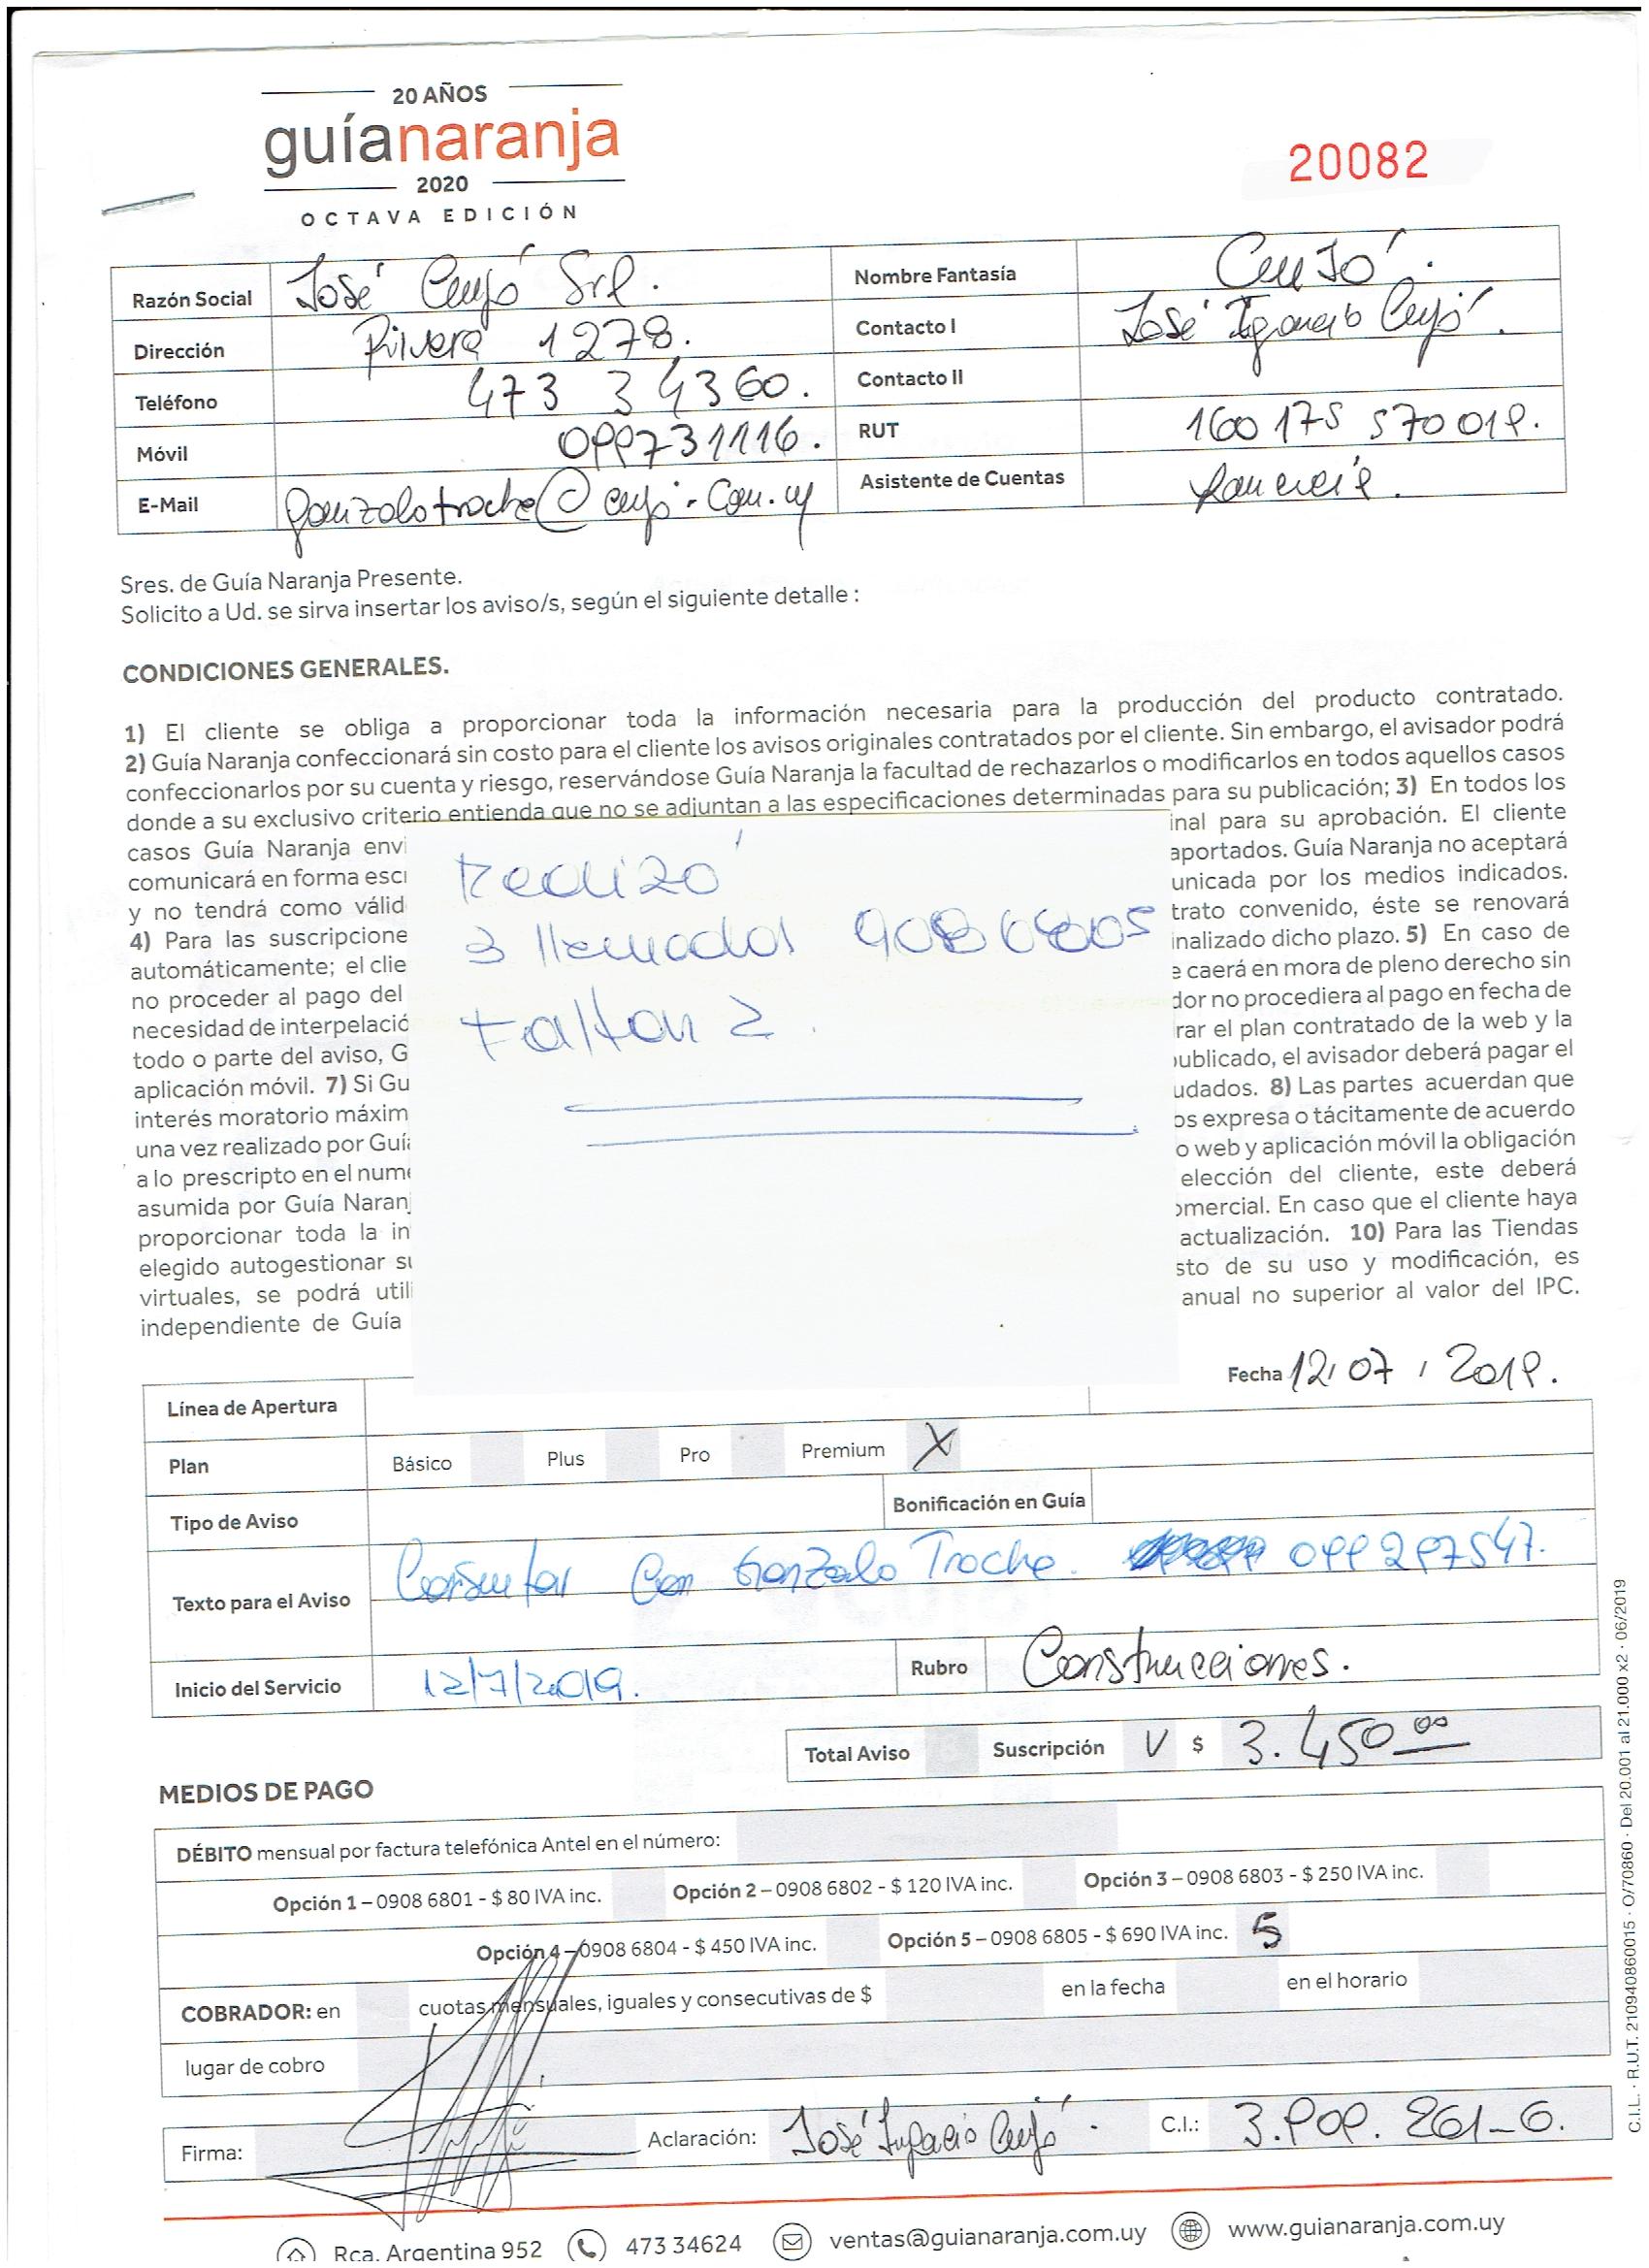 20 AÑOS
guíanaranja
2020
OCTAVA EDICIÓN
20082
Razón Social José Cujó Srl.
Nombre Fantasía Cujó.
Dirección Rivera 1278.
Contacto I José Ignacio Cujó.
Teléfono 473 34360.
Contacto II
Móvil 099731116.
RUT 160 175 570 019.
E-Mail gonzalotroche@cujo.com.uy
Asistente de Cuentas
Sres. de Guía Naranja Presente.
Solicito a Ud. se sirva insertar los aviso/s, según el siguiente detalle :
CONDICIONES GENERALES.
1) El cliente se obliga a proporcionar toda la información necesaria para la producción del producto contratado.
2) Guía Naranja confeccionará sin costo para el cliente los avisos originales contratados por el cliente. Sin embargo, el avisador podrá
confeccionarlos por su cuenta y riesgo, reservándose Guía Naranja la facultad de rechazarlos o modificarlos en todos aquellos casos
donde a su exclusivo criterio entienda que no se adjuntan a las especificaciones determinadas para su publicación; 3) En todos los
casos Guía Naranja envi inal para su aprobación. El cliente
comunicará en forma escr aportados. Guía Naranja no aceptará
y no tendrá como válid unicada por los medios indicados.
4) Para las suscripcione trato convenido, éste se renovará
automáticamente; el clie inalizado dicho plazo. 5) En caso de
no proceder al pago del e caerá en mora de pleno derecho sin
necesidad de interpelació dor no procediera al pago en fecha de
todo o parte del aviso, G rar el plan contratado de la web y la
aplicación móvil. 7) Si Gu publicado, el avisador deberá pagar el
interés moratorio máxim udados. 8) Las partes acuerdan que
una vez realizado por Guía os expresa o tácitamente de acuerdo
a lo prescripto en el nume o web y aplicación móvil la obligación
asumida por Guía Naranj elección del cliente, este deberá
proporcionar toda la in omercial. En caso que el cliente haya
elegido autogestionar su actualización. 10) Para las Tiendas
virtuales, se podrá utili sto de su uso y modificación, es
independiente de Guía anual no superior al valor del IPC.
Realizó
3 llamadas 9086805
Faltan 2.
Fecha 12/07/2019.
Línea de Apertura
Plan Básico Plus Pro Premium X
Tipo de Aviso Bonificación en Guía
Texto para el Aviso Consultar Con Gonzalo Troche. 099297547.
Inicio del Servicio 12/7/2019.
Rubro Construcciones.
Total Aviso Suscripción V $ 3.450 00
MEDIOS DE PAGO
DÉBITO mensual por factura telefónica Antel en el número:
Opción 1 – 0908 6801 - $ 80 IVA inc. Opción 2 – 0908 6802 - $ 120 IVA inc. Opción 3 – 0908 6803 - $ 250 IVA inc.
Opción 4 – 0908 6804 - $ 450 IVA inc. Opción 5 – 0908 6805 - $ 690 IVA inc. 5
COBRADOR: en cuotas mensuales, iguales y consecutivas de $ en la fecha en el horario
lugar de cobro
Firma: Aclaración: José Ignacio Cujó. C.I.: 3.909.261-6.
Rca. Argentina 952 473 34624 ventas@guianaranja.com.uy www.guianaranja.com.uy
C.I.L. · R.U.T. 210940860015 · O/70860 · Del 20.001 al 21.000 x2 · 06/2019